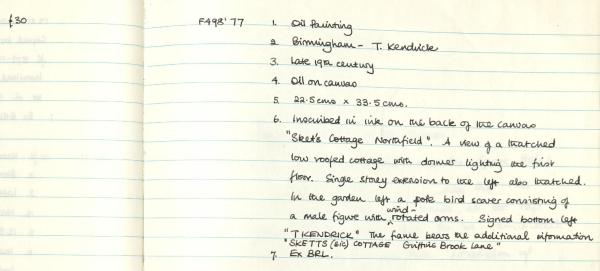 £30
F498'77
1. Oil Painting
2. Birmingham - T. Kendrick
3. Late 19th century
4. Oil on canvas
5. 22.5cms x 33.5cms.
6. Inscribed in ink on the back of the canvas
"Sket's Cottage Northfield". A view of a thatched
low roofed cottage with dormer lighting the first
floor. Single storey extension to the left also thatched.
In the garden left a pole bird scarer consisting of
a male figure with wind-rotated arms. Signed bottom left
"T KENDRICK" The fame bears the additional information
"SKETTS (sic) COTTAGE Griffins Brook Lane"
7. Ex BRL.